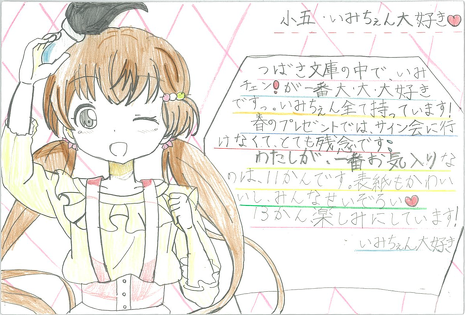 小五・いみちぇん大好き
つばさ文庫の中で、いみ
チェン!が一番大・大・大好き
ですっ。いみちぇん全て持っています!
春のプレゼントでは、サイン会に行
けなくて、とても残念です。
わたしが、一番お気入りな
のは、11かんです。表紙もかわい
いし、みんなせいぞろい
13かん楽しみにしています!
いみちぇん大好き